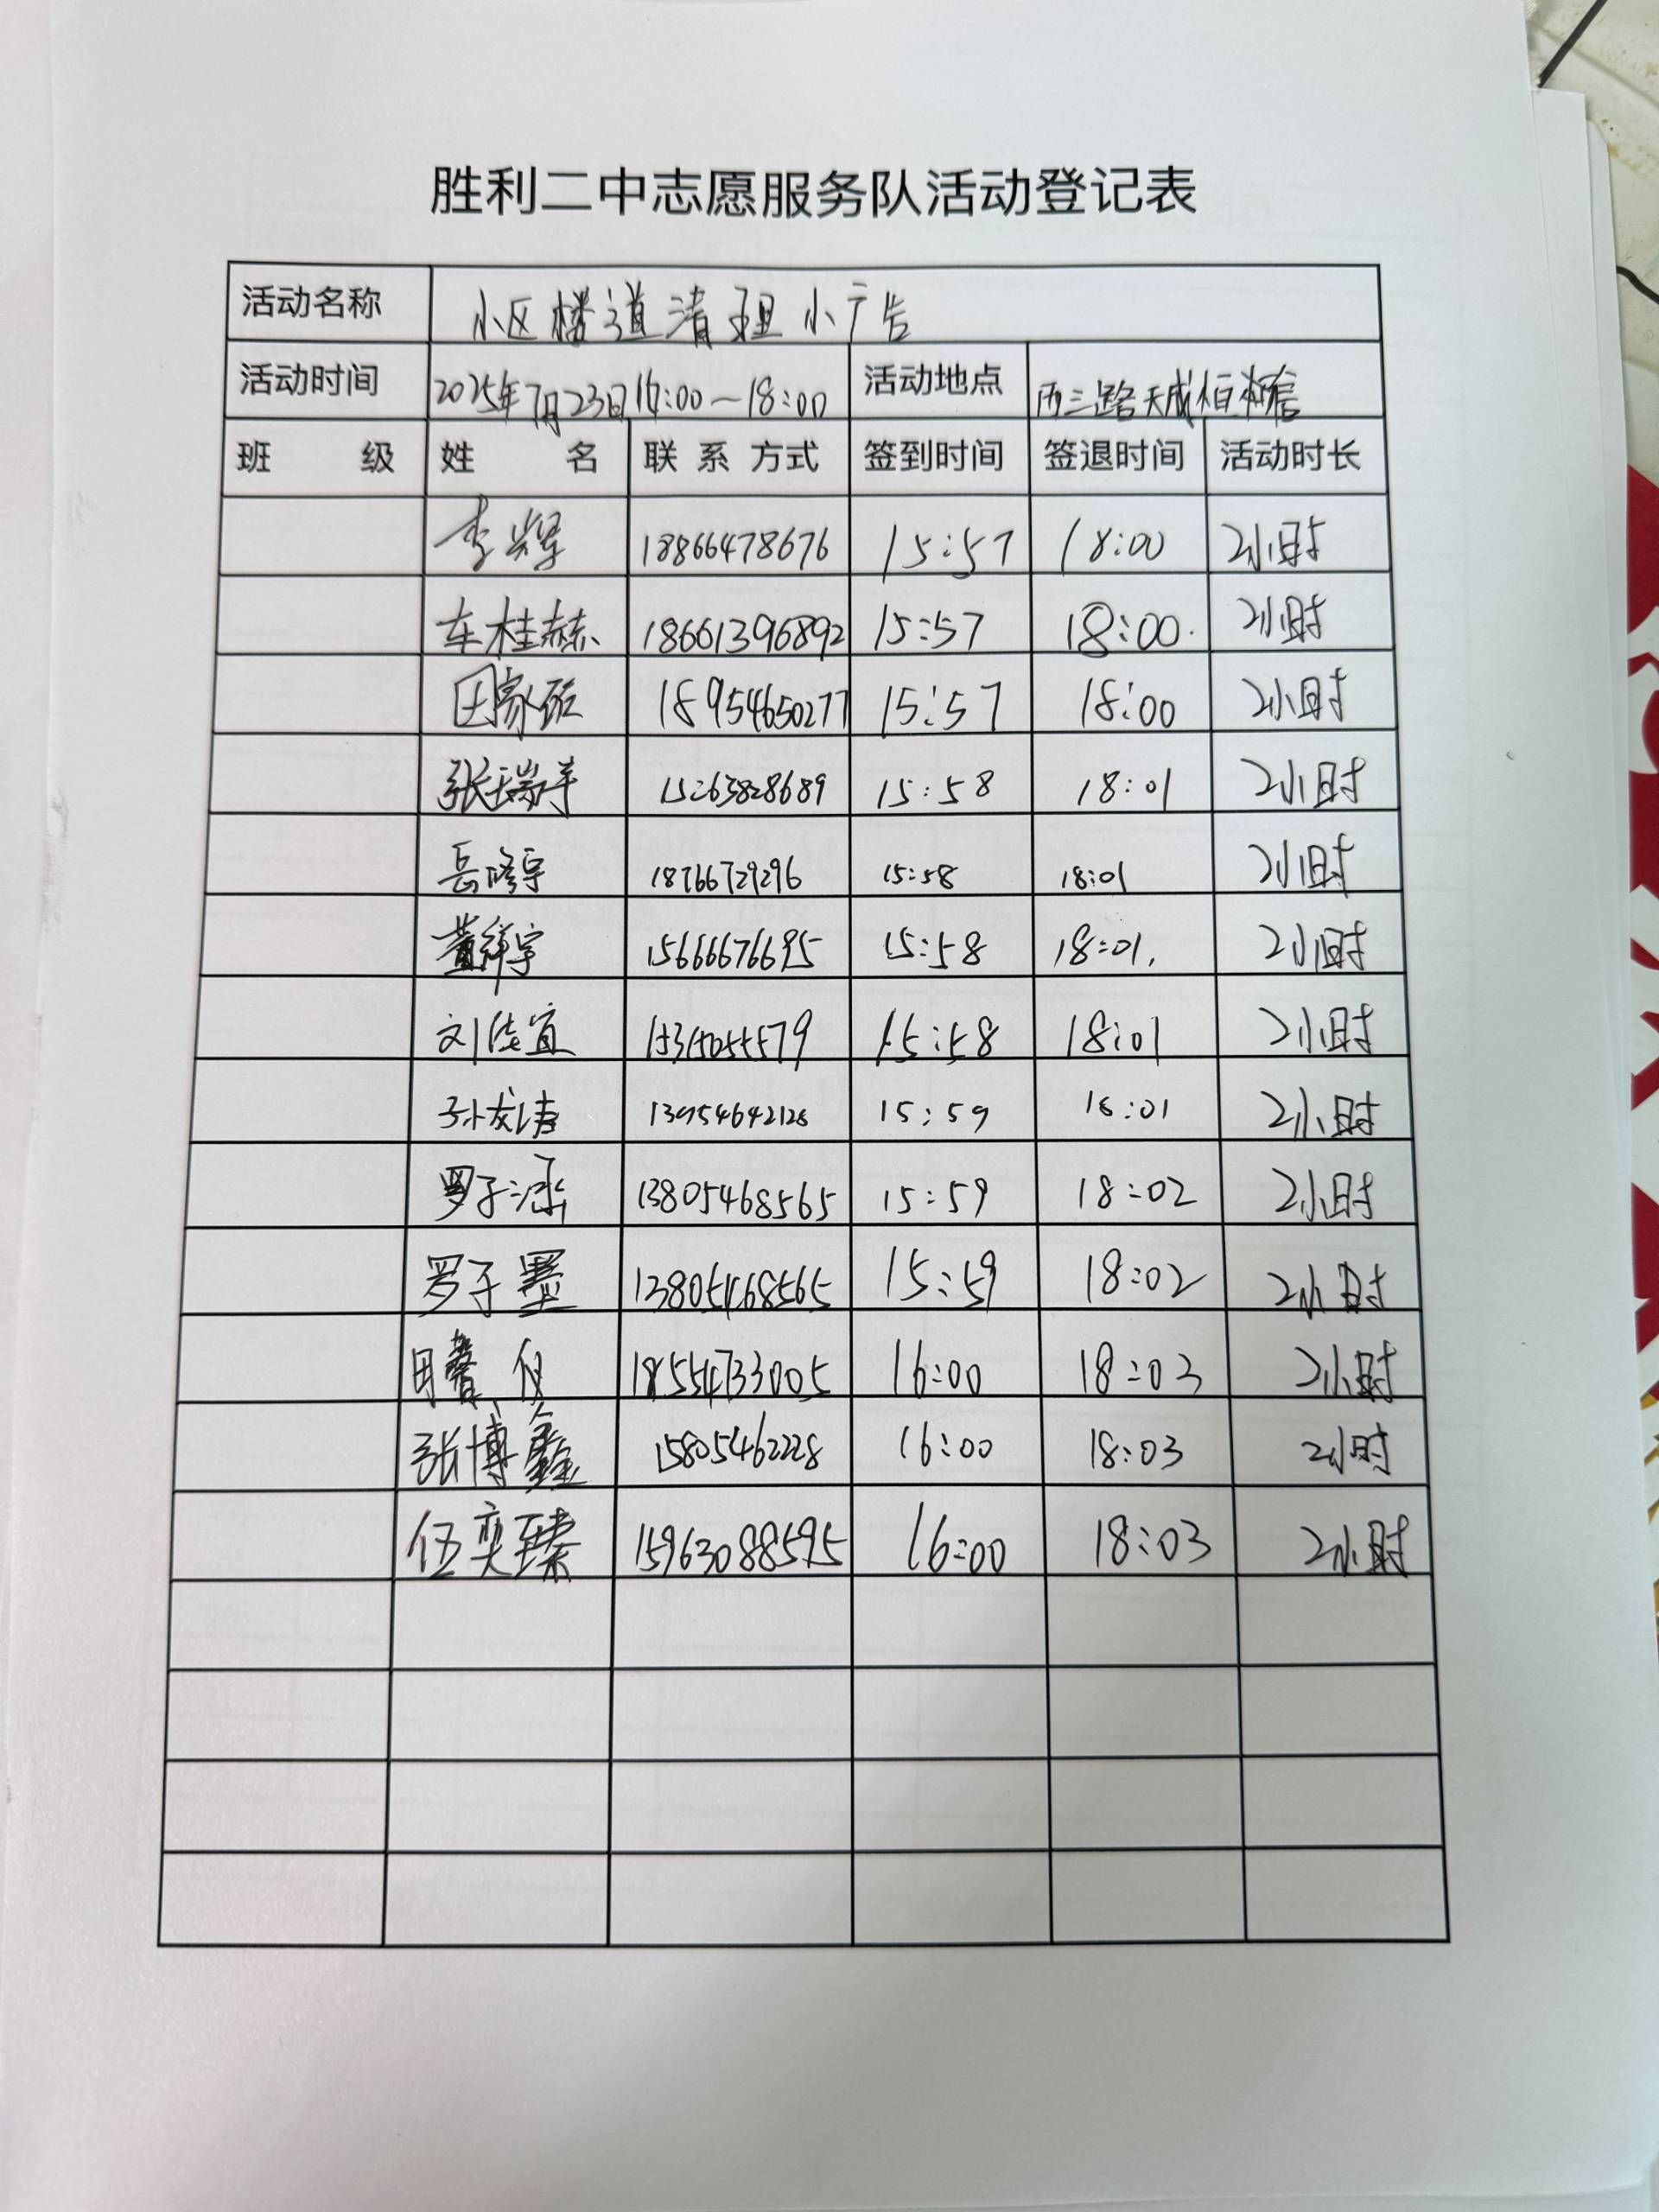 胜利二中志愿服务队活动登记表
活动名称 小区楼道清理小广告
活动时间 2025年7月23日16:00-18:00 活动地点 西三路
班 级 姓 名 联 系 方式 签到时间 签退时间 活动时长
李辉 18866478676 15:57 18:00 2小时
车桂赫 18661396892 15:57 18:00 2小时
18954650277 15:57 18:00 2小时
15263828689 15:58 18:01 2小时
18766729296 15:58 18:01 2小时
董祥宇 15666676695 15:58 18:01 2小时
15:58 18:01 2小时
13954642128 15:59 18:01 2小时
罗子涵 13805468565 15:59 18:02 2小时
罗子墨 13805468565 15:59 18:02 2小时
18554733005 16:00 18:03 2小时
张博鑫 15805462228 16:00 18:03 2小时
伍奕臻 15963088595 16:00 18:03 2小时